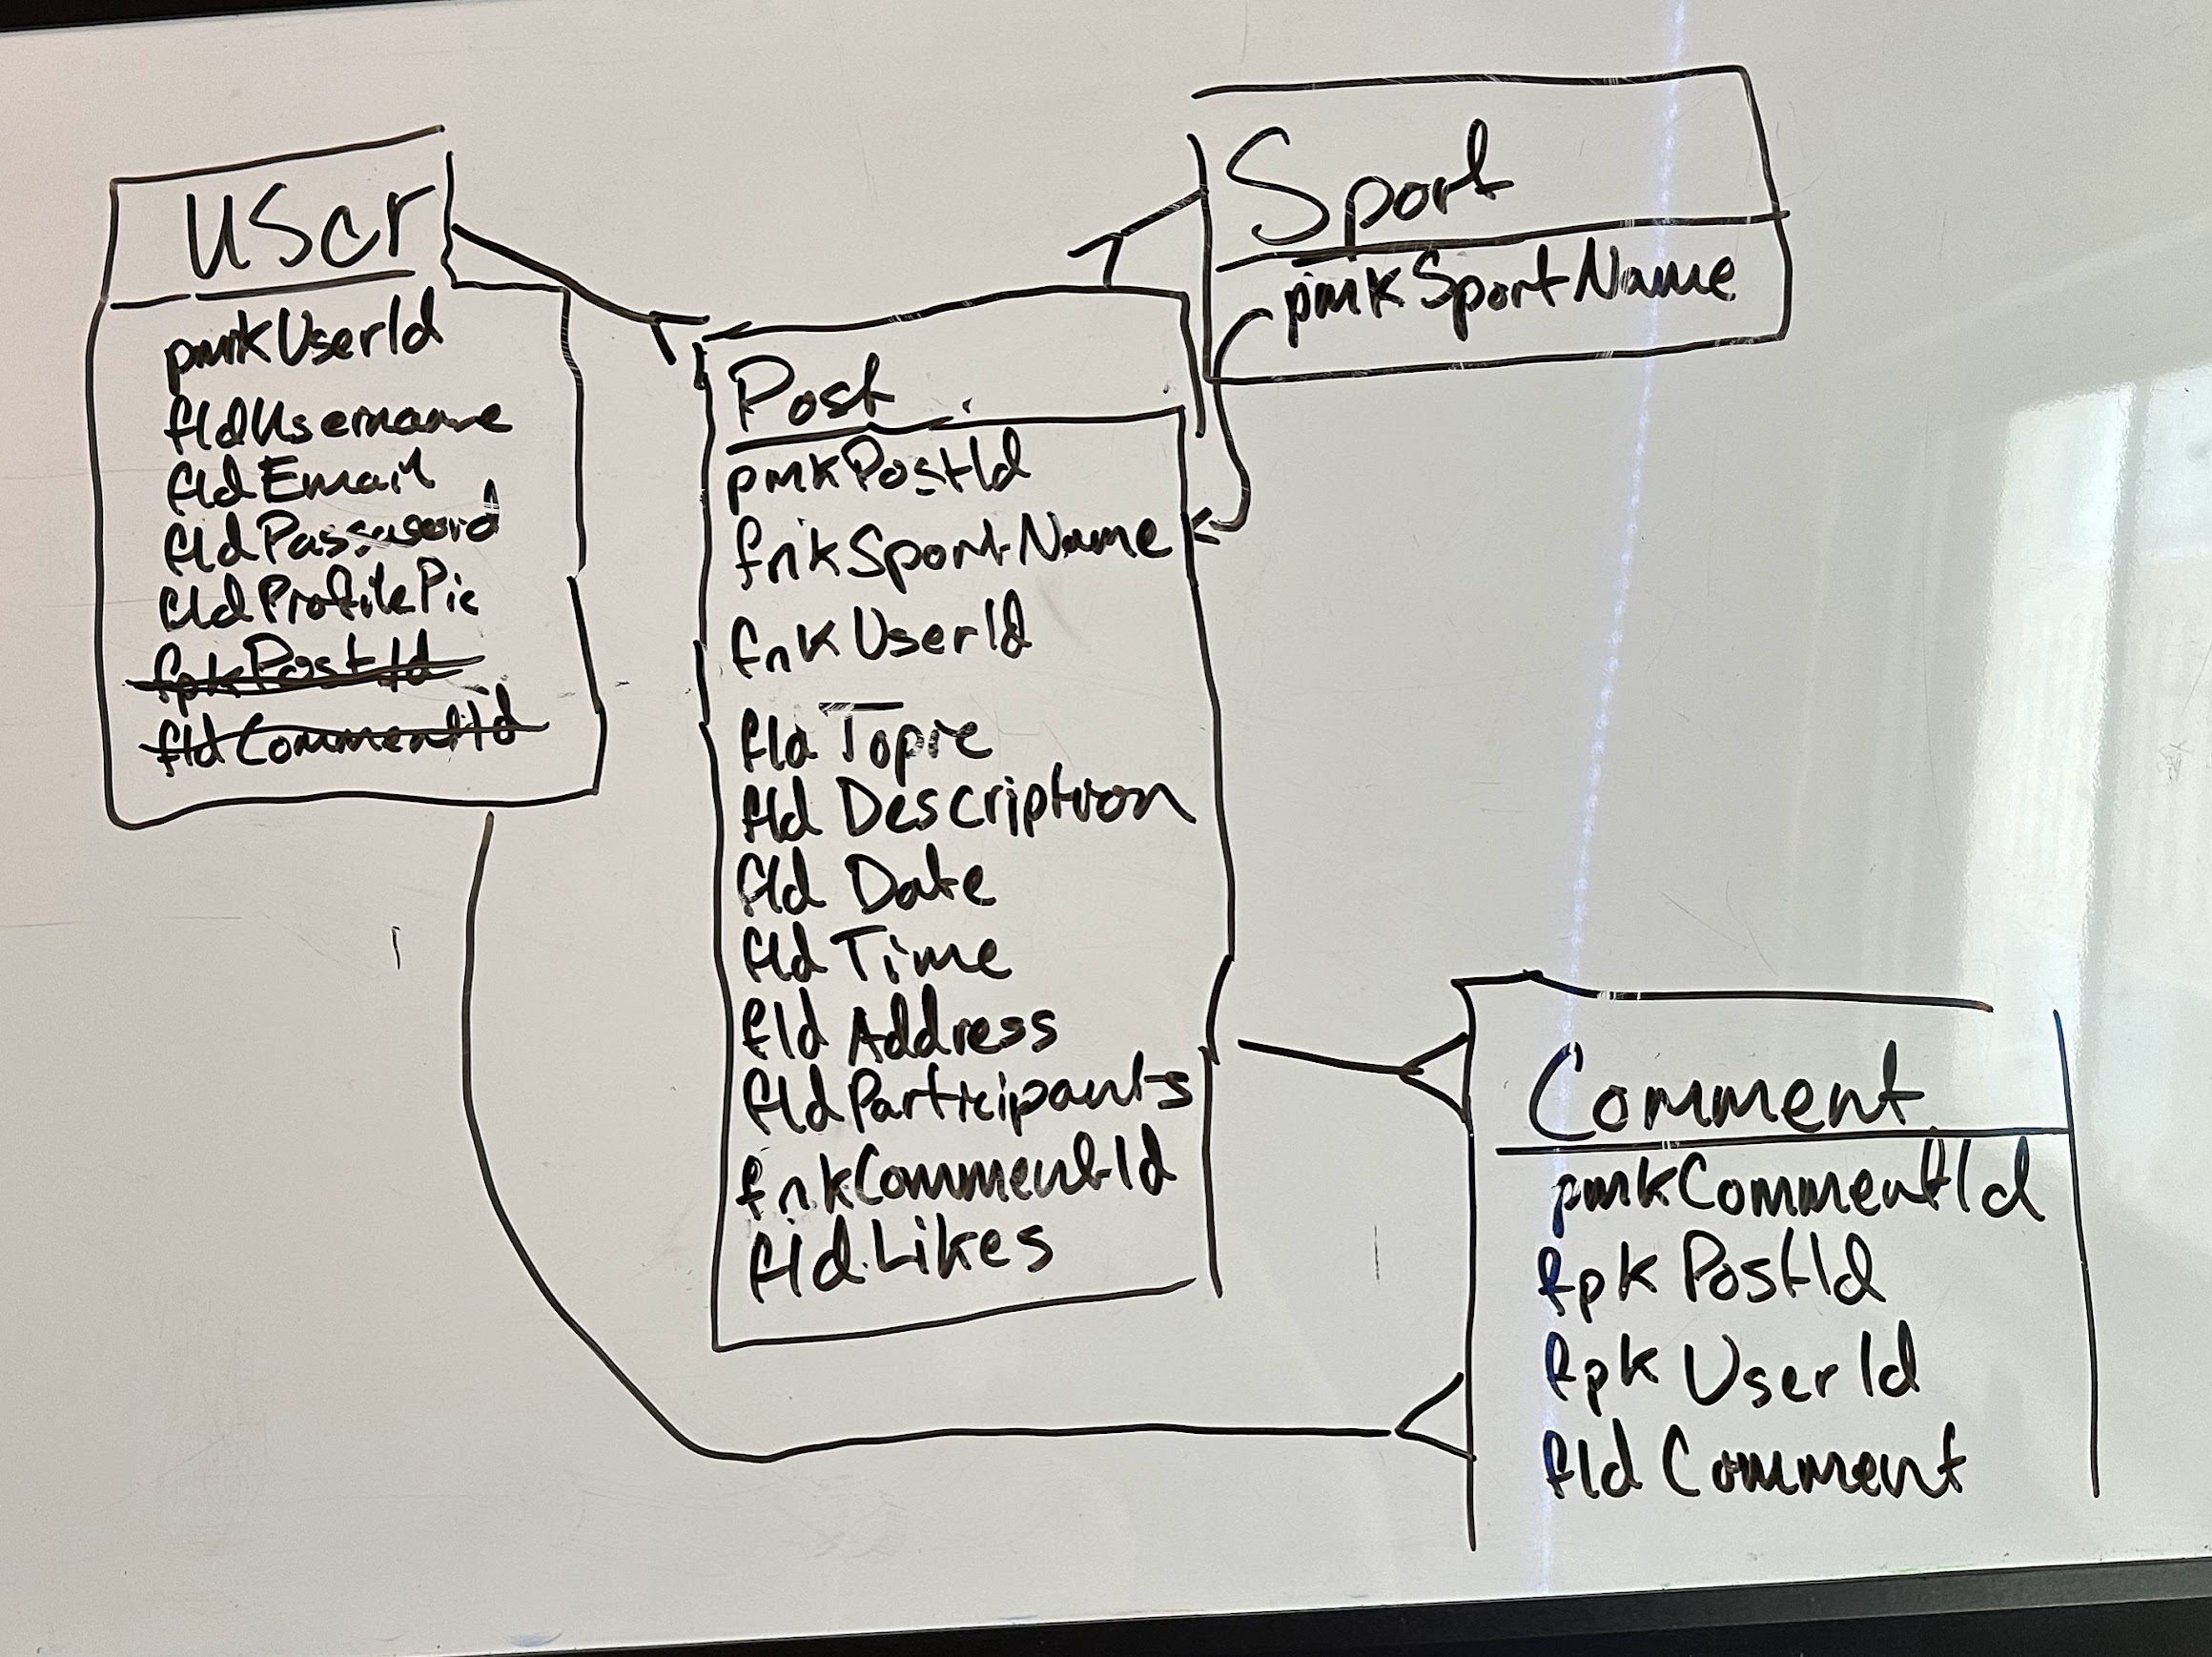 User
pmkUserId
fldUsername
fldEmail
fldPassword
fldProfilePic
fpkPostId
fldCommentId
Sport
pmkSportName
Post
pmkPostId
fnkSportName
fnkUserId
fldTopic
fld Description
fld Date
fld Time
fld Address
fldParticipants
fnkCommentId
fldLikes
Comment
pmkCommentId
fpk PostId
fpk UserId
fld Comment